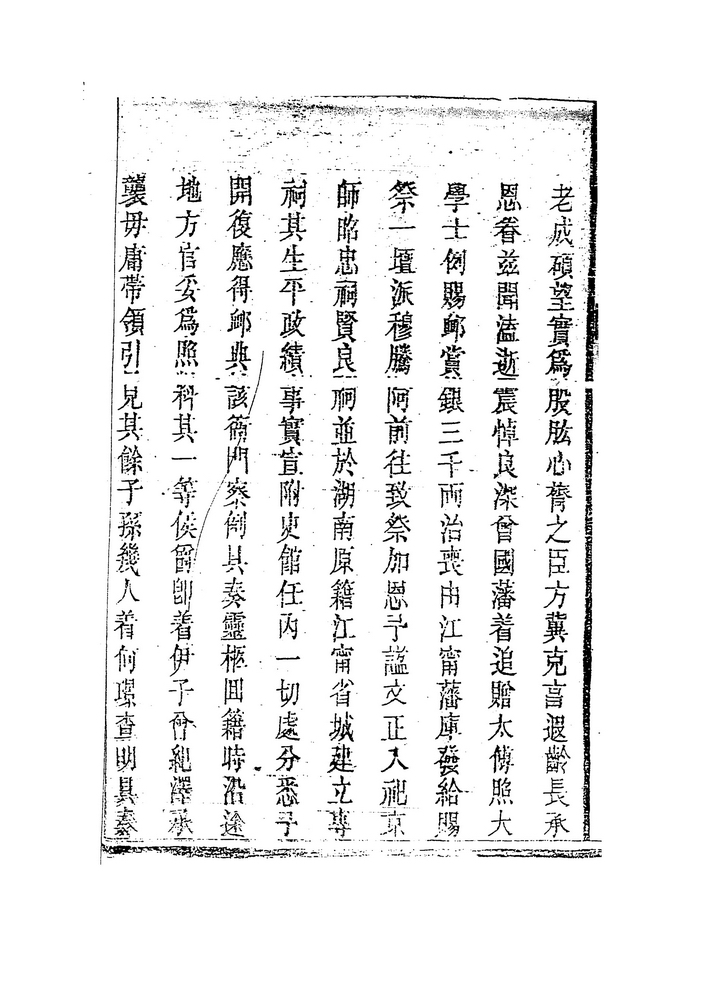 老成碩望實爲股肱心膂之臣方冀克享遐齡長承
恩眷兹聞溘逝震悼良深曾國藩着追贈太傅照大
學士例賜卹賞銀三千両治喪由江甯藩庫發給賜
祭一壇派穆騰阿前往致祭加恩予謚文正入祀京
師昭忠祠賢良祠並於湖南原籍江甯省城建立專
祠其生平政績事實宣附史館任内一切處分悉予
開復應得卹典該衙門察例具奏靈柩囘籍時沿途
地方官妥爲照料其一等侯爵卽着伊子曾紀澤承
襲毋庸帶領引見其餘子孫幾人着何璟查明具奏